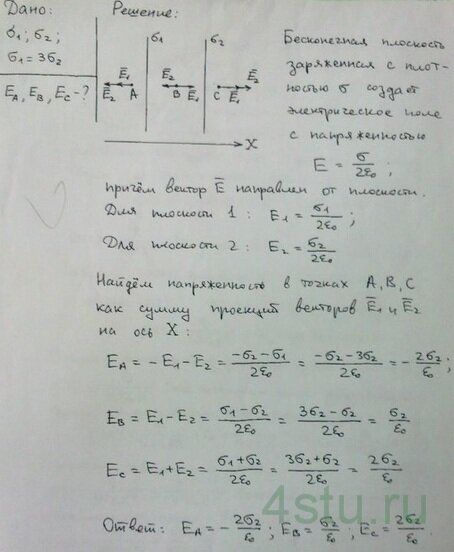 Дано:
σ1; σ2;
σ1 = 3σ2
EA, EB, EC - ?
Решение:
σ1 σ2
E̅1 E̅2 E̅2
E̅2 A B E̅1 C E̅1
X
Бесконечная плоскость
заряженная с плот-
ностью σ создает
электрическое поле
с напряженностью
E = σ/2ε0 ;
причём вектор E̅ направлен от плоскости.
Для плоскости 1 : E1 = σ1/2ε0 ;
Для плоскости 2 : E2 = σ2/2ε0
Найдём напряженность в точках A, B, C
как сумму проекций векторов E̅1 и E̅2
на ось X :
EA = - E1 - E2 = -σ2 - σ1/2ε0 = -σ2 - 3σ2/2ε0 = - 2σ2/ε0 ;
EB = E1 - E2 = σ1 - σ2/2ε0 = 3σ2 - σ2/2ε0 = σ2/ε0
EC = E1 + E2 = σ1 + σ2/2ε0 = 3σ2 + σ2/2ε0 = 2σ2/ε0
4stu.ru
Ответ: EA = - 2σ2/ε0 ; EB = σ2/ε0 ; EC = 2σ2/ε0